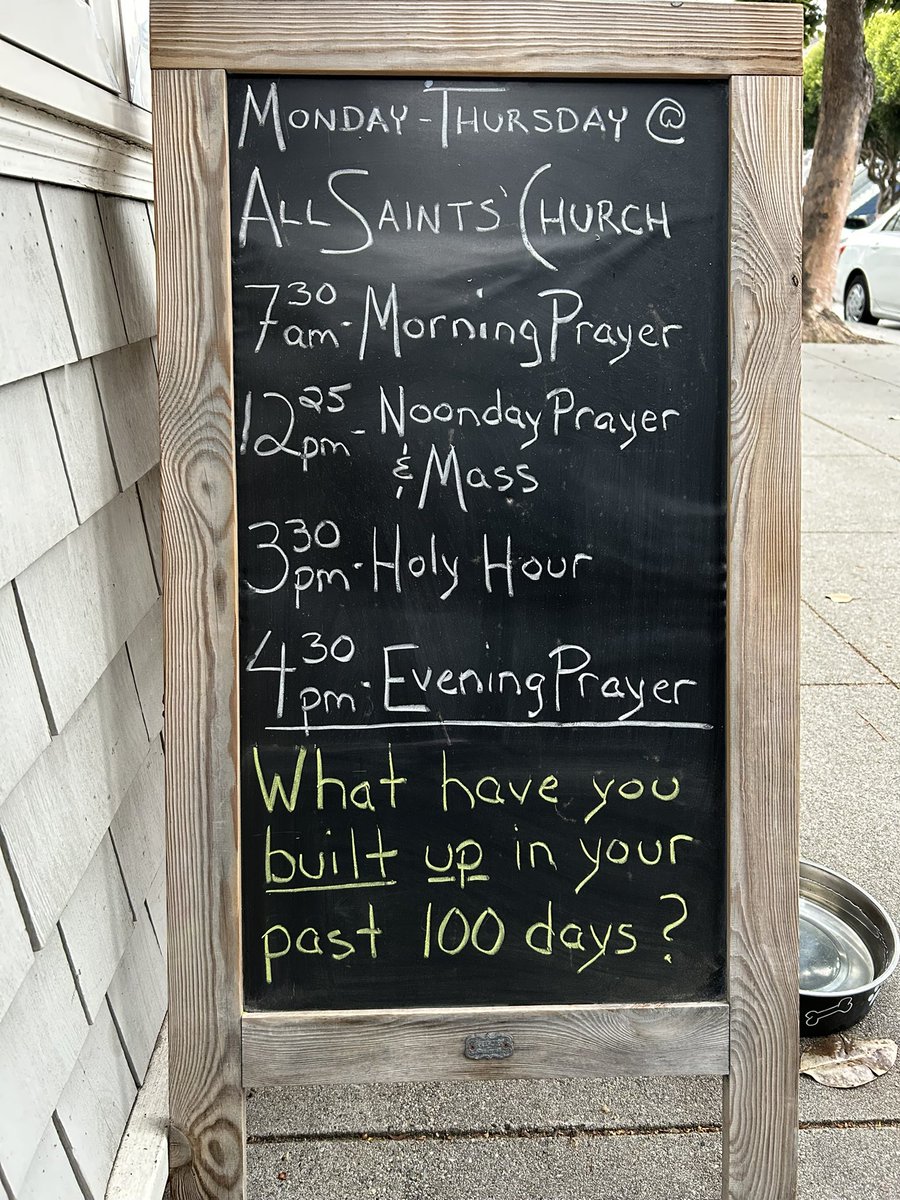 Monday - Thursday @
All Saints' Church
7 30 am - Morning Prayer
12 25 pm - Noonday Prayer
& Mass
3 30 pm - Holy Hour
4 30 pm - Evening Prayer
What have you
built up in your
past 100 days?